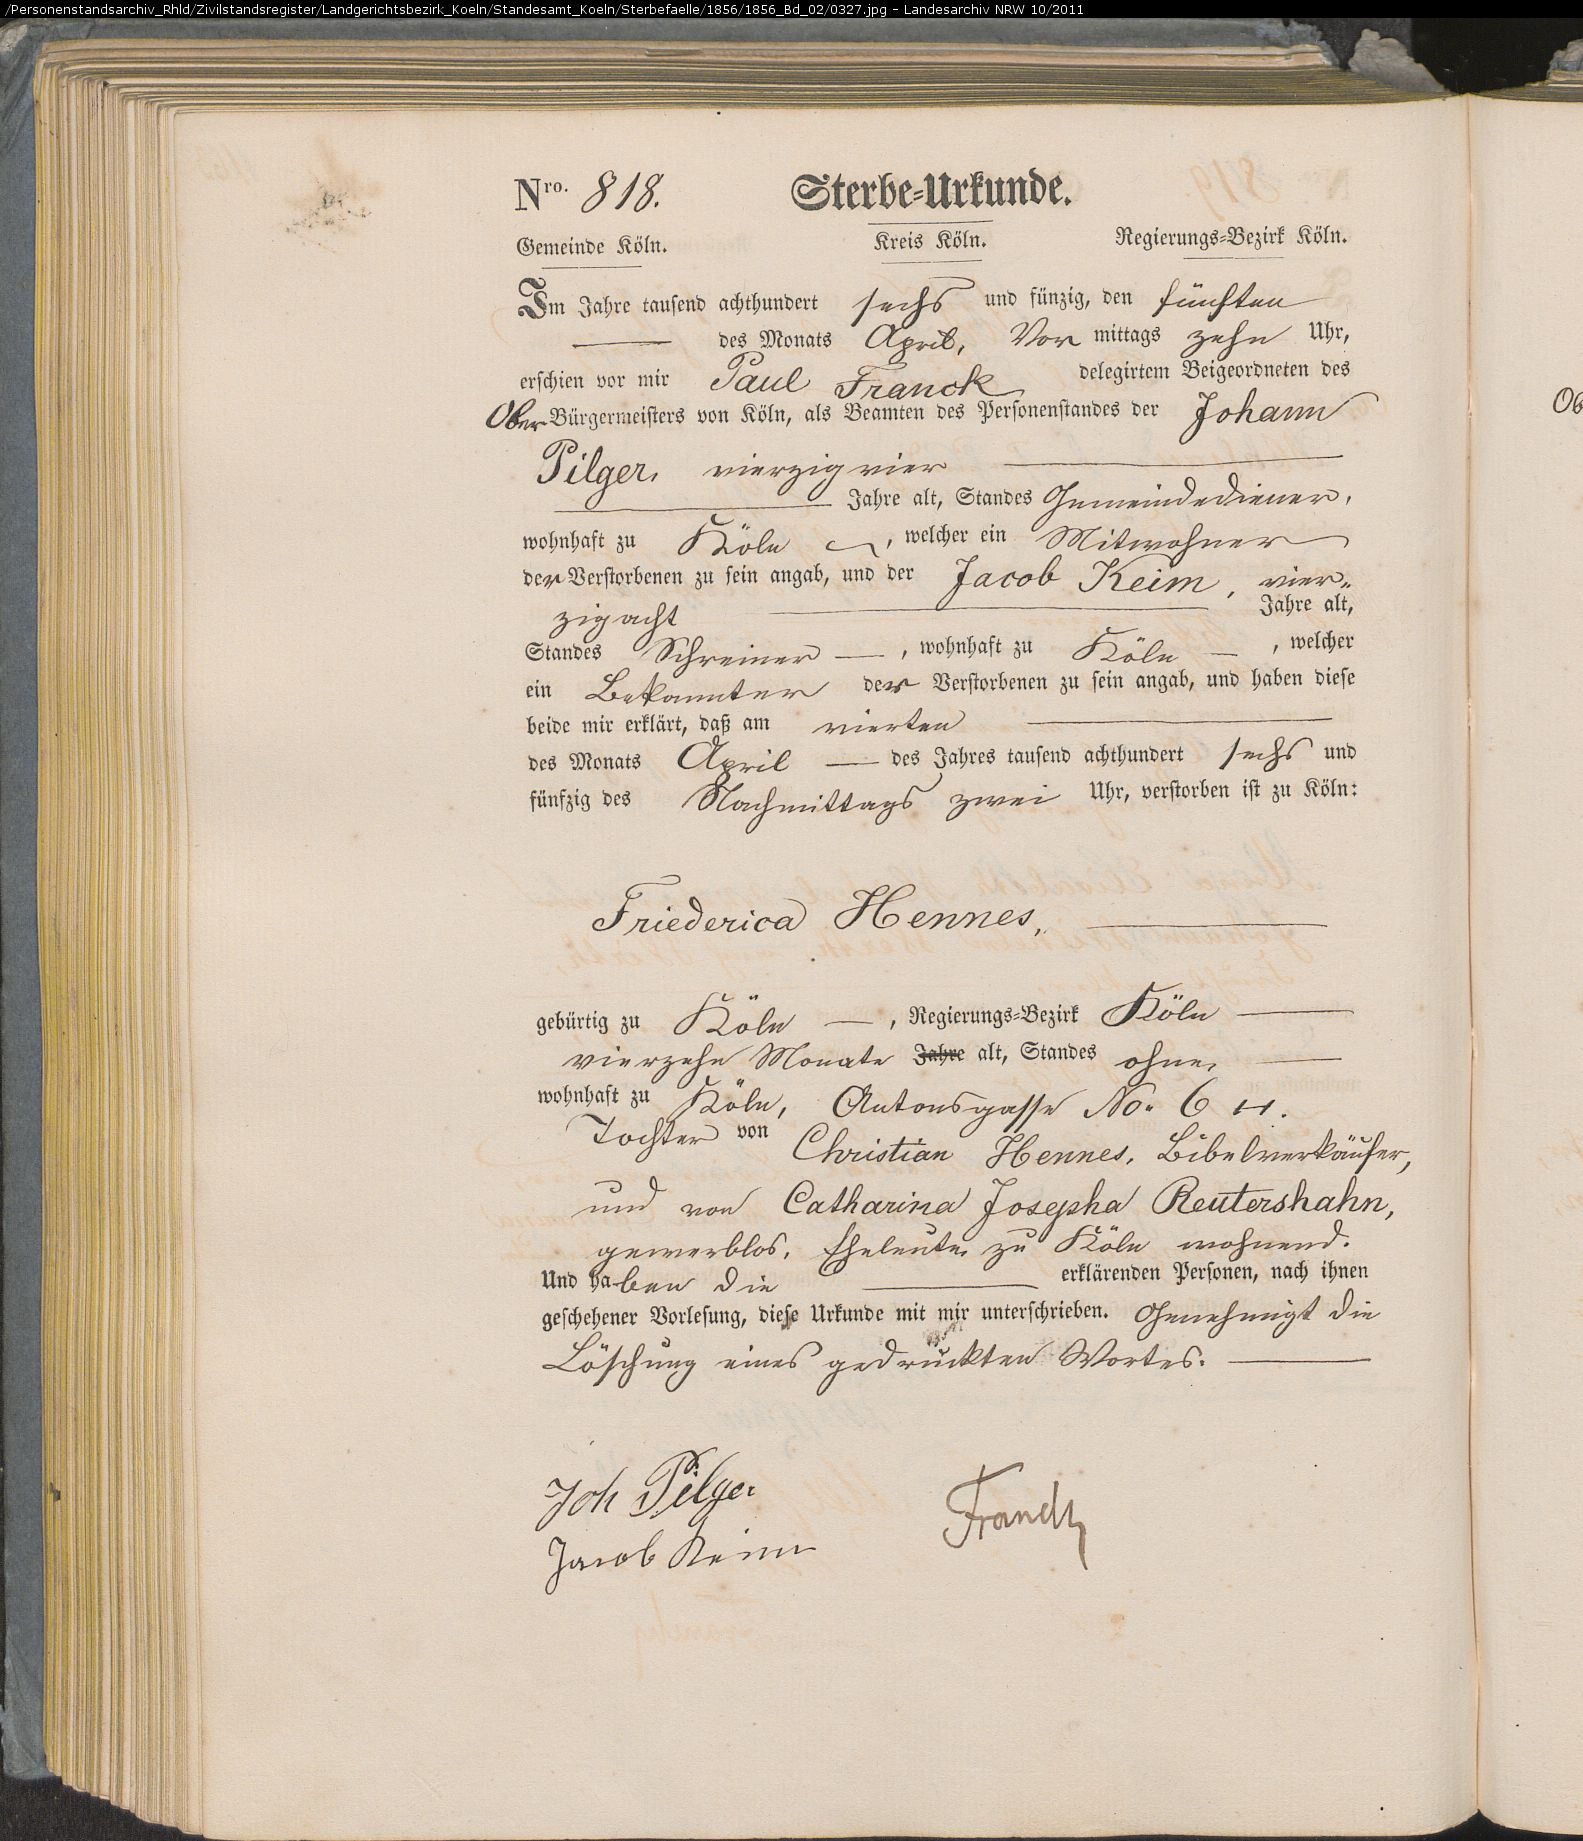 /Personenstandsarchiv_Rhld/Zivilstandsregister/Landgerichtsbezirk_Koeln/Standesamt_Koeln/Sterbefaelle/1856/1856_Bd_02/0327.jpg - Landesarchiv NRW 10/2011
Nro. 818. Sterbe-Urkunde.
Gemeinde Köln. Kreis Köln. Regierungs-Bezirk Köln.
Im Jahre tausend achthundert sechs und fünzig, den fünften
des Monats April, Vor mittags zehn Uhr,
erschien vor mir Paul Franck delegirtem Beigeordneten des
Ober Bürgermeisters von Köln, als Beamten des Personenstandes der Johann
Pilger, vierzig vier
Jahre alt, Standes Gemeindediener,
wohnhaft zu Köln, welcher ein Mitwohner
der Verstorbenen zu sein angab, und der Jacob Keim, vier-
zig acht Jahre alt,
Standes Schreiner —, wohnhaft zu Köln —, welcher
ein Bekannter der Verstorbenen zu sein angab, und haben diese
beide mir erklärt, daß am vierten
des Monats April — des Jahres tausend achthundert sechs und
fünfzig des Nachmittags zwei Uhr, verstorben ist zu Köln:
Friederica Hennes,
gebürtig zu Köln —, Regierungs-Bezirk Köln
vierzehn Monate Jahre alt, Standes ohne,
wohnhaft zu Köln, Antonsgasse No. 6
Tochter von Christian Hennes, Bibelverkäufer,
und von Catharina Josepha Reutershahn,
gewerblos, Eheleute, zu Köln wohnend.
Und haben die erklärenden Personen, nach ihnen
geschehener Vorlesung, diese Urkunde mit mir unterschrieben. Genehmigt die
Löschung eines gedruckten Wortes.
Joh Pilger
Franck
Jacob Keim
Ob